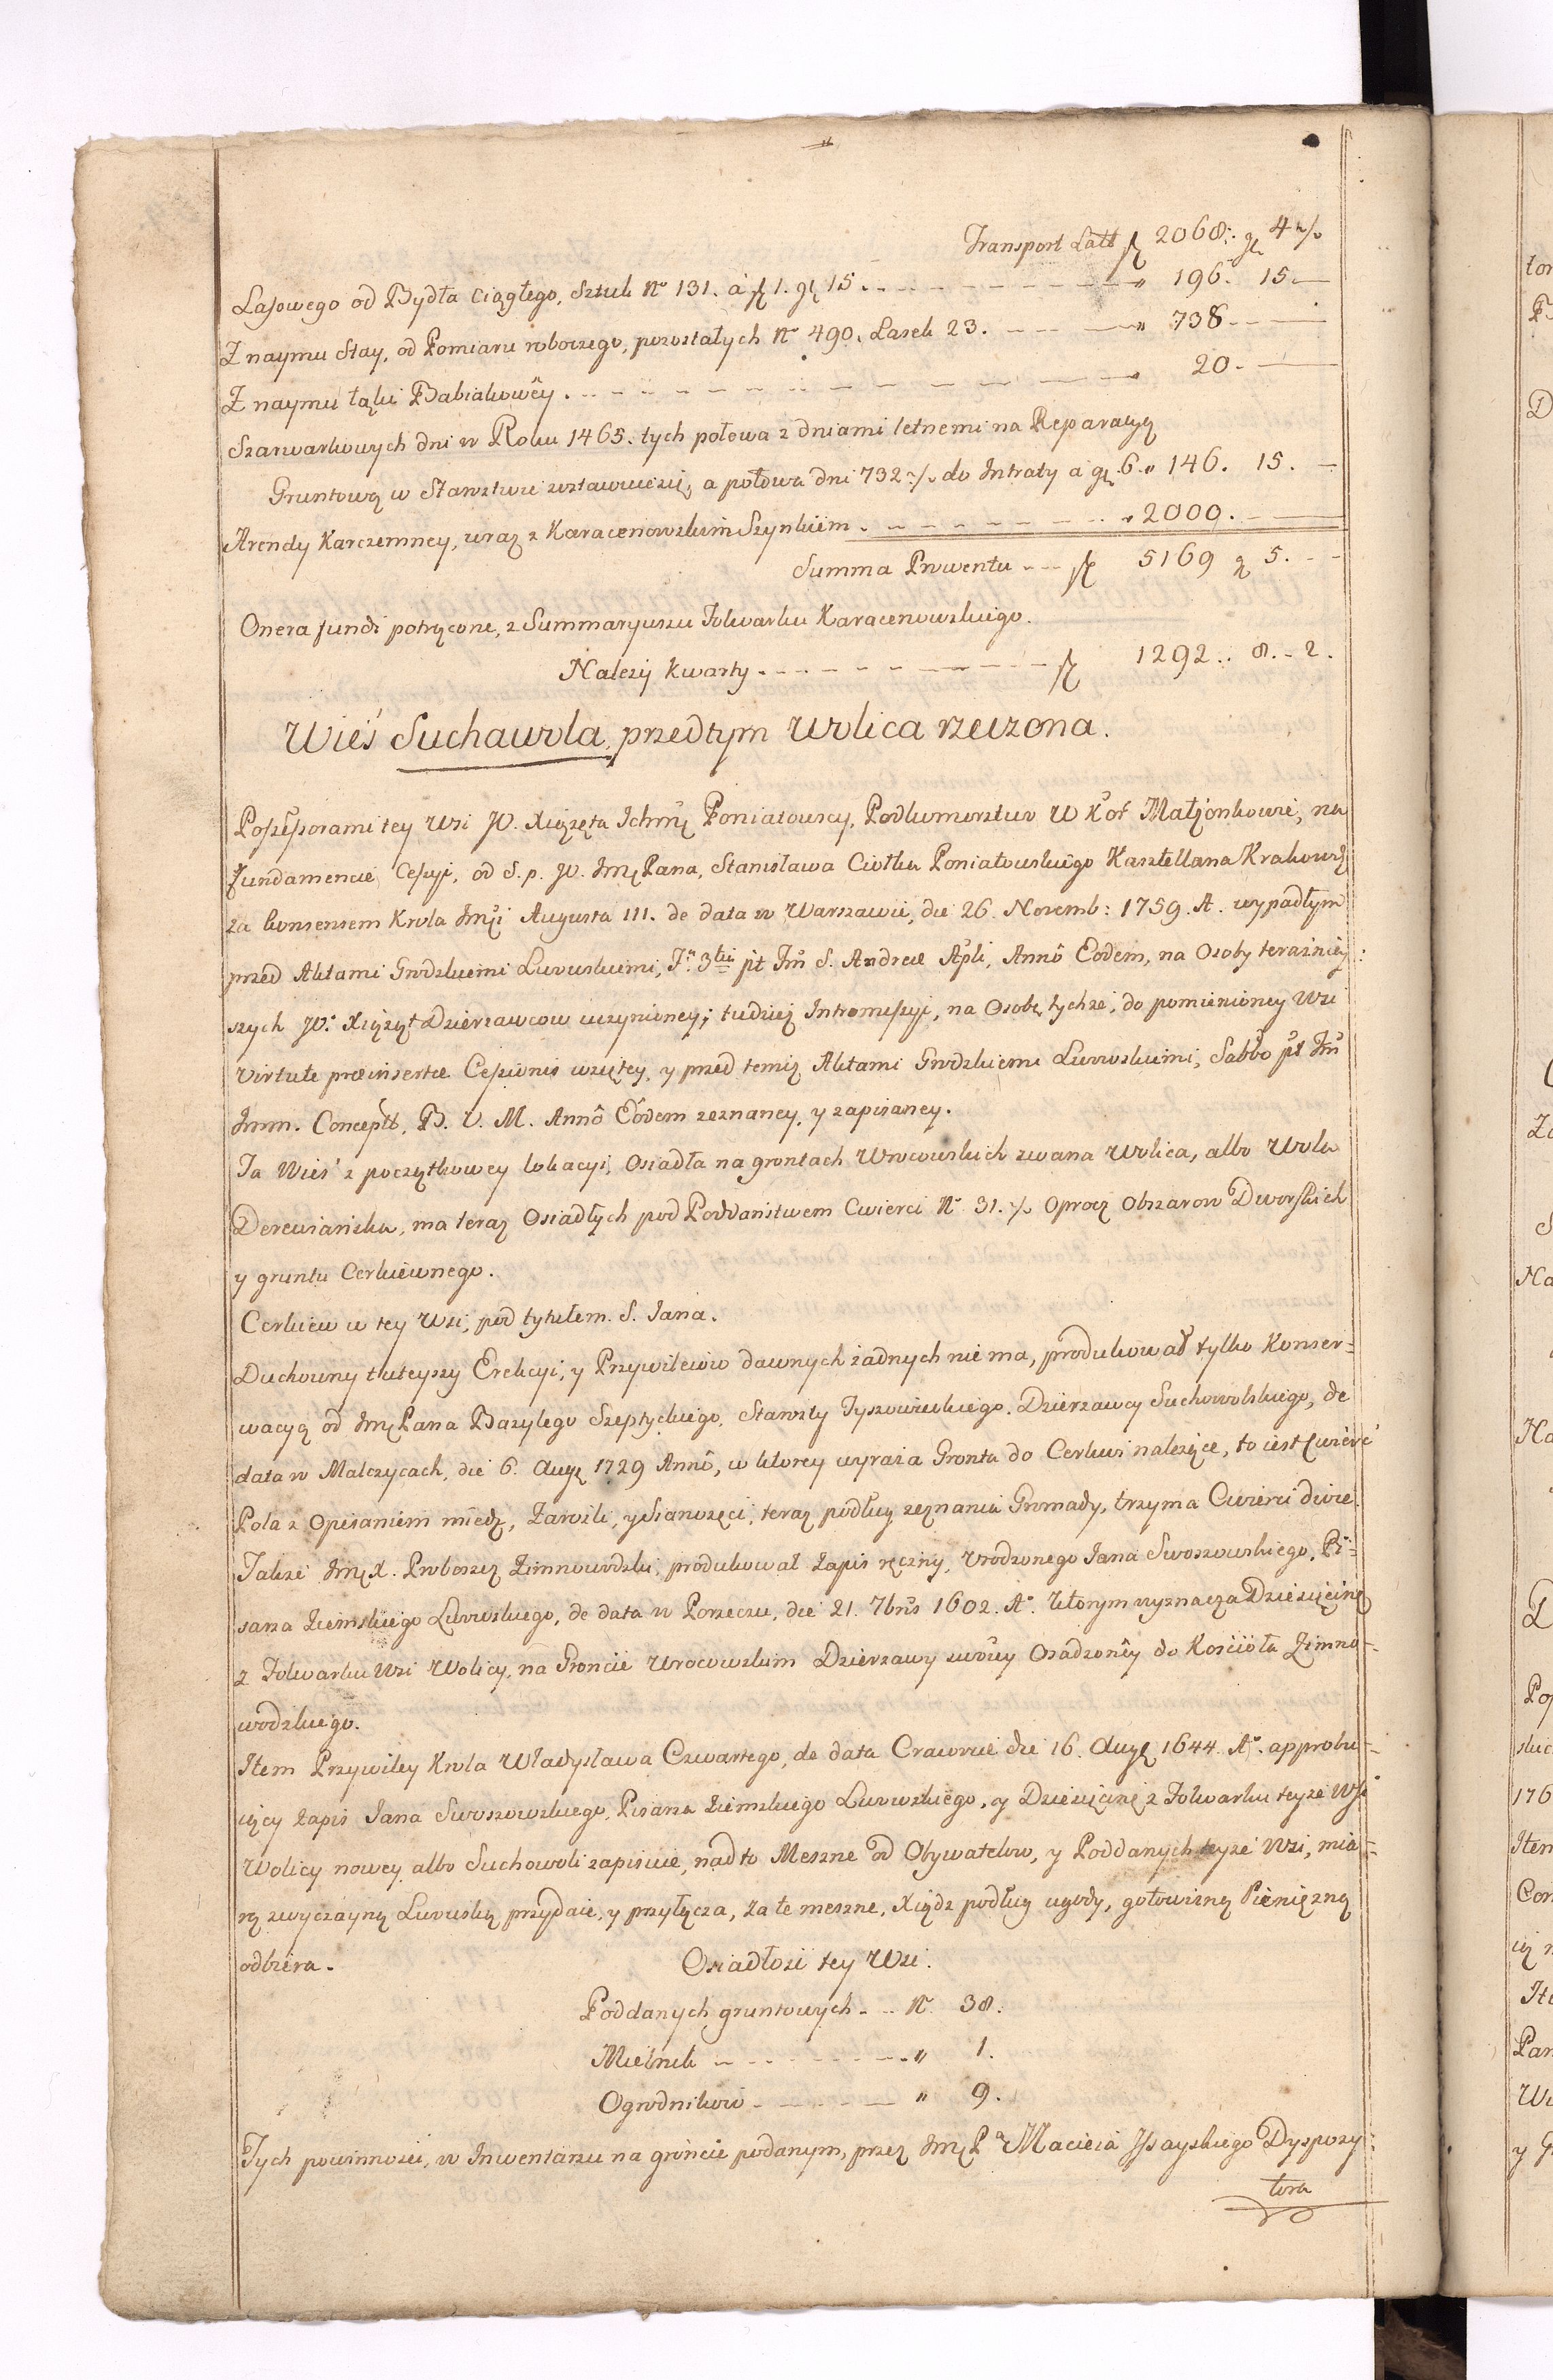 Transport Latt fl 2068. gr 4 ½
Lasowego od Bydła ciągłego, Sztuk No 131. à fl 1. gr 15. „ 196. 15.
Z naymu Stay, od Pomiaru roboczego, pozostałych No 490. Lasek 23. „ 738
Z naymu łąki Babiakowey. „ 20.
Szarwarkowych dni w Roku 1465. tych połowa z dniami letnemi na Reparacyą
Gruntową w Starostwie zostawuie się, a połowa dni 732 ½ do Intraty a gr. 6. „ 146. 15.
Arendy Karczemney, wraz z Karacenowskim Szynkiem. „ 2000.
Summa Prowentu fl 5169 gr 5.
Onera fundi potrącone, z Summaryuszu Folwarku Karacenowskiego.
Należy kwarty fl 1292.. 8. - 2.
Wieś Suchawola, przedtym Wolica rzeczona.
Possessorami tey Wsi JO. Xiążęta Ichmć Poniatowscy, Podkomorstwo W Kor Małżonkowie, na
fundamencie Cessyi, od S. p. JO. Jmć Pana, Stanisława Ciołka Poniatowskiego Kasztellana Krakows:
za konsensem Krola Jmci Augusta III. de data w Warszawie, die 26. Novemb: 1759. A. wypadłym
przed Aktami Grodzkiemi Lwowskiemi, F. 3tii pt Fm S. Andreæ Apli, Anno Eodem, na Osoby teraźniey:
szych JO: Xiążąt Dzierzawcow uczynioney; tudzież Intromissyi, na Osobę tychże, do pomienioney Wsi
virtute præinsertæ Cessionis wziętey, y przed temiż Aktami Grodzkiemi Lwowskiemi, Sabbo pt Fm
Imm. Concept. B. V. M. Anno Eodem zeznaney, y zapisaney.
Ta Wieś z początkowey lokacyi, Osiadła na grontach Wrocowskich zwana Wolica, albo Wola
Derewiańska, ma teraz Osiadłych pod Poddaństwem Cwierci No 31. ½ oprocz Obszarow Dworskich
y gruntu Cerkiewnego.
Cerkiew w tey Wsi, pod tytułem S. Jana.
Duchowny tuteyszy Erekcyi, y Przywileiow dawnych żadnych nie ma, produkował tylko Konser-
wacyą od Jmć Pana Bazylego Szeptyckiego, Starosty Tyszowieckiego. Dzierzawcy Suchowolskiego, de
data w Malczycach, die 6. Augi 1729 Anno, w ktorey wyraża Gronta do Cerkwi należące, to iest Cwierć
Pola z Opisaniem miedz, Zarosli, y Sianożęci, teraz podług zeznania Gromady, trzyma Cwierci dwie.
Takze Jmć X. Proboszcz Zimnowodzki, produkował Zapis ręczny, Urodzonego Jana Swoszowskiego, Pi-
sarza Ziemskiego Lwowskiego, de data w Porzeczu, die 21. 7bris 1602. A. którym wyznacza Dziesięcinę
z Folwarku Wsi Wolicy, na Groncie Wrocowskim Dzierzawy swoiey Osadzoney do Kościoła Zimno-
wodzkiego.
Item Przywiley Krola Władysława Czwartego, de data Cracoviæ die 16. Augi 1644 Ao. approbu-
iący Zapis Jana Swoszowskiego, Pisarza Ziemskiego Lwowskiego, y Dziesięcinę z Folwarku teyże Wsi
Wolicy nowey, albo Suchowoli zapisuie, nad to Meszne od Obywatelow, y Poddanych teyże Wsi, mia-
rą zwyczayną Lwowską przydaie, y przyłącza, za te meszne, Xiądz podług ugody, gotowizną Pieniężną
odbiera.
Osiadłość tey Wsi.
Poddanych gruntowych No 38.
Mielnik „ 1.
Ogrodnikow „ 9.
Tych powinnosci, w Inwentarzu na groncie podanym, przez Jmć Pa Macieia Dyspozy:
tora